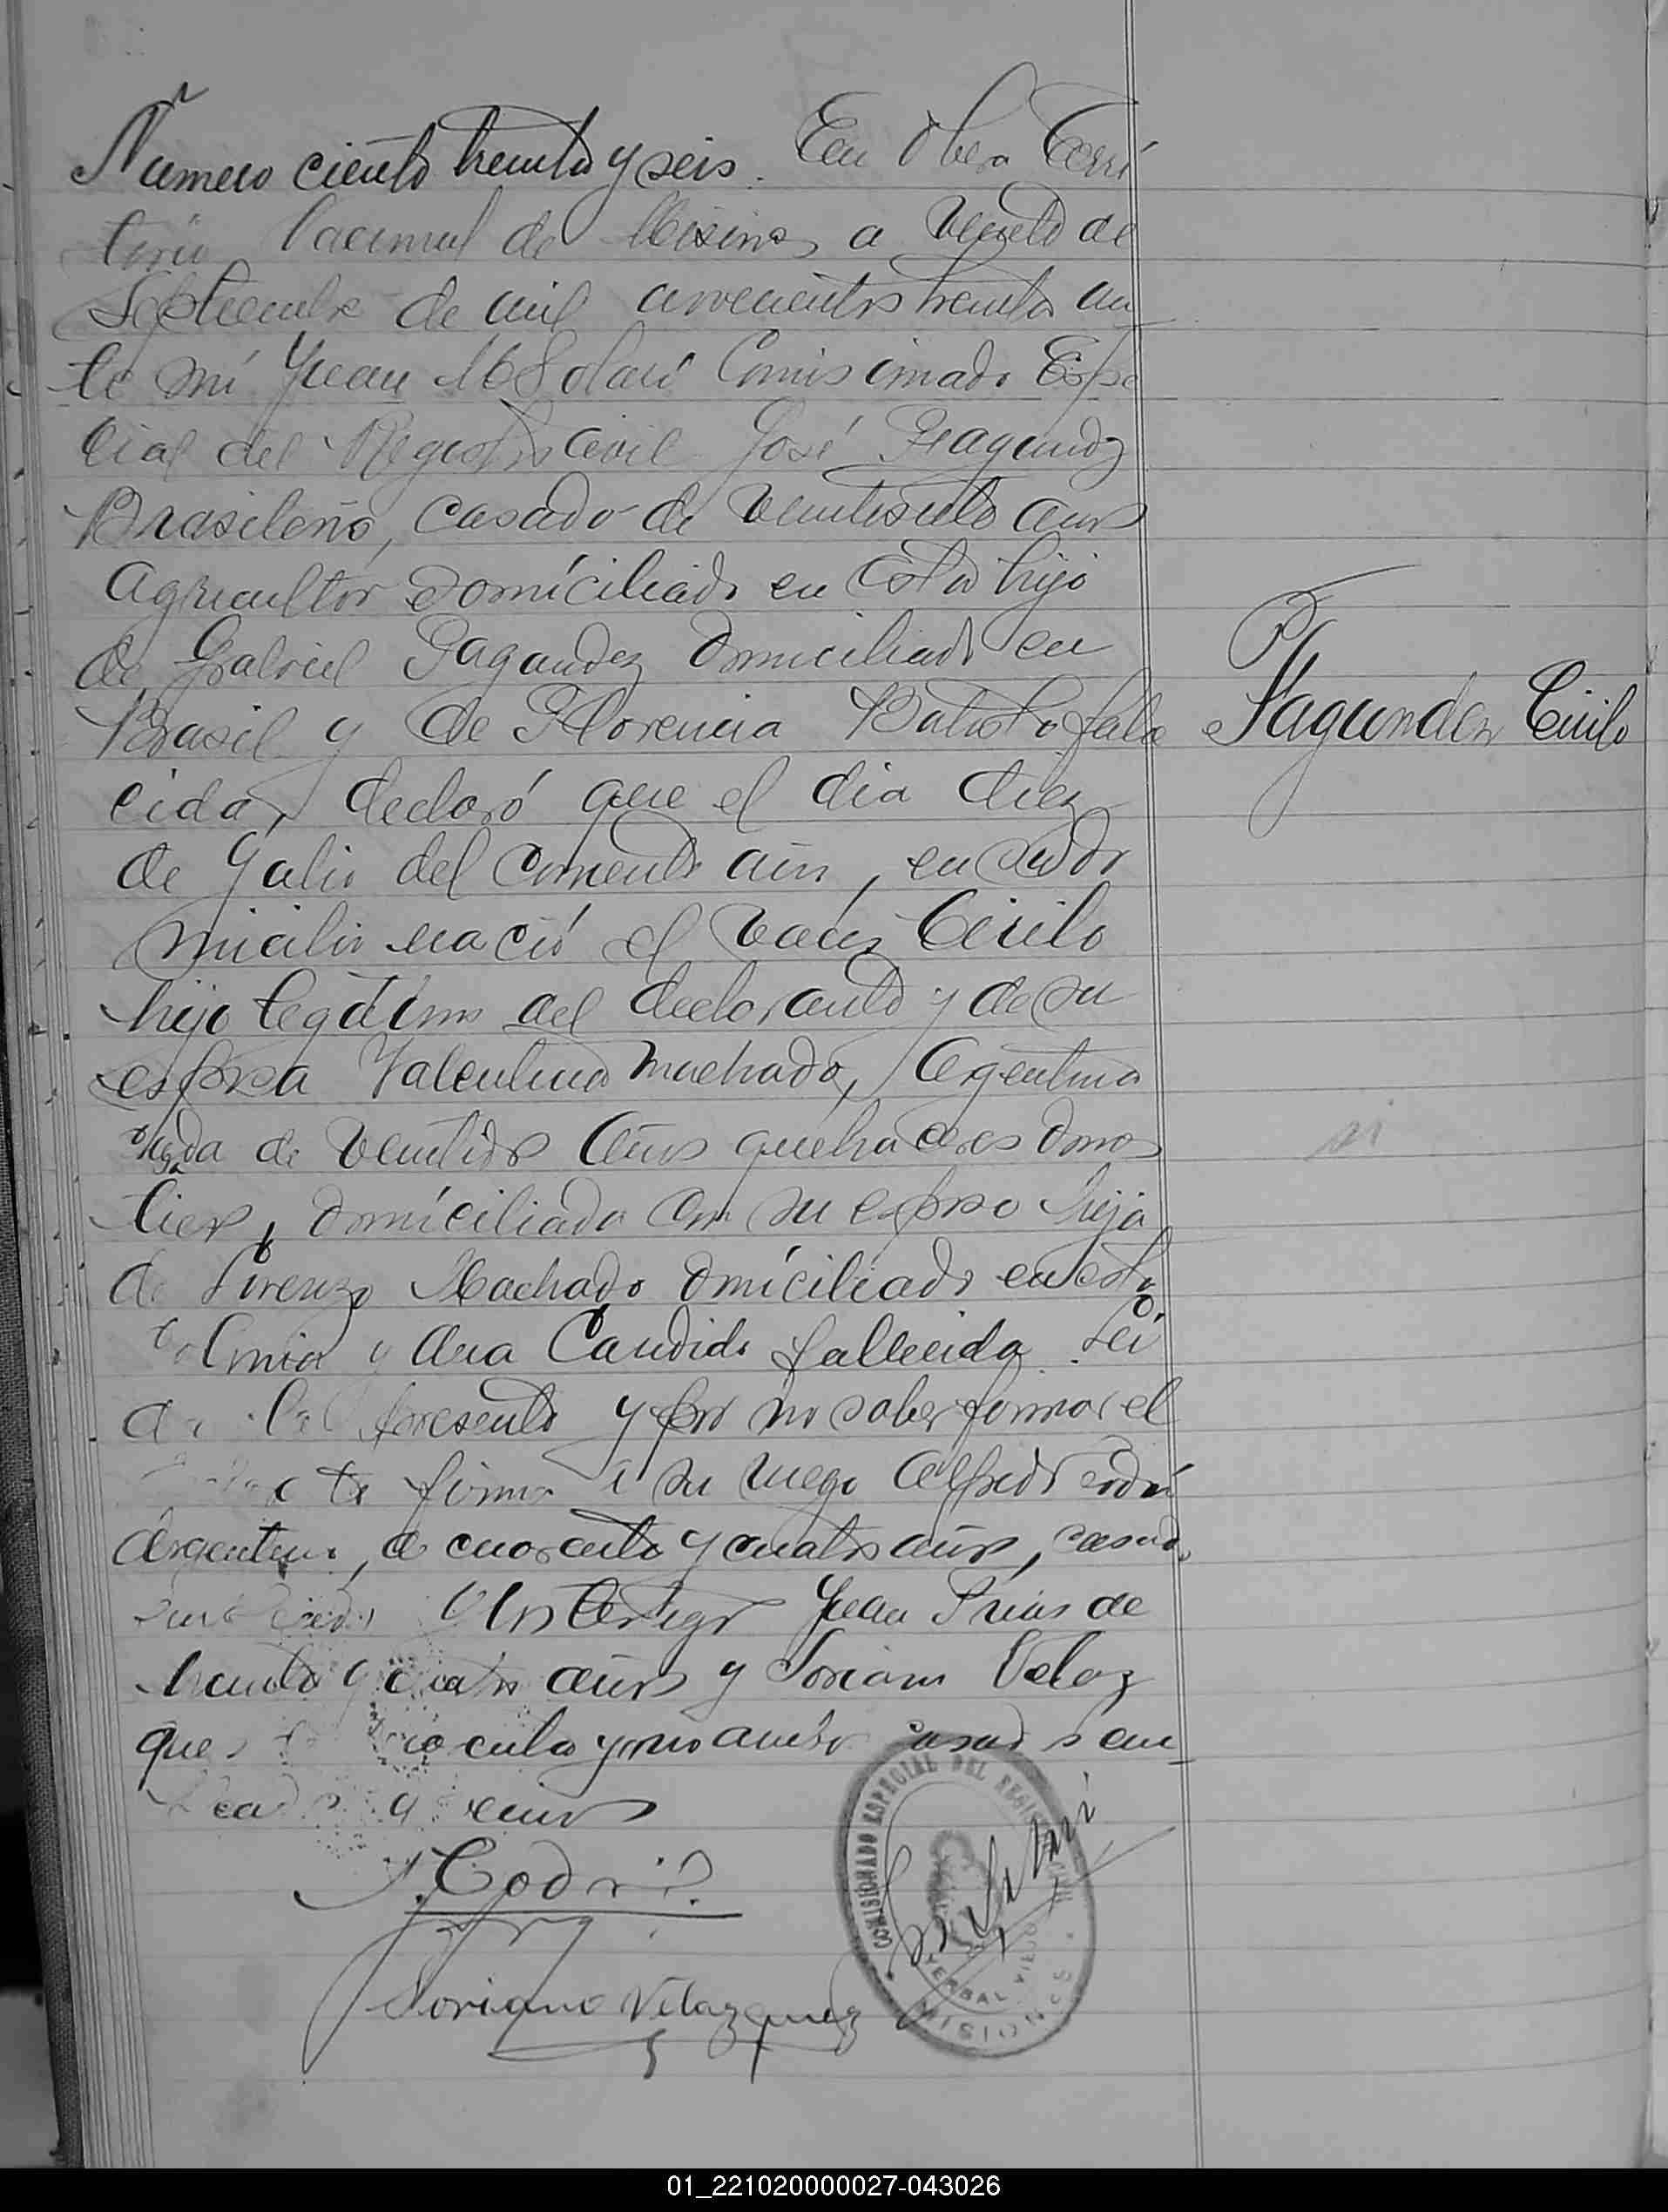 Número ciento treinta y seis. En Obera Terri
torio Nacional de Misiones a veinte de
Septiembre de mil novecientos treinta an
te mí Juan M Solari Comisionado Espe
cial del Registro Civil José Fagundez
Brasileño, casado de veintisiete años
agricultor domiciliado en esta hijo
de Gabriel Fagundez domiciliado en
Brasil y de Florencia Batista falle
cida, declaró que el dia diez
de Julio del corriente año, en su do
micilio nació el varón Cirilo
hijo legítimo del declarante y de su
esposa Valentina Machado, Argentina
de veintidos años quehaceres domes
ticos, domiciliada con su esposo hija
de Lorenzo Machado domiciliado en esta
Colonia y Ana Candida fallecida. Leí
da la presente y por no saber firmar el
firma a su ruego Alfredo
Argentino, de cuarenta y cuatro años, casado
Testigos Juan Frias de
treinta y cuatro años y Soriano Velaz
quez de cincuenta y uno ambos casados em
Soriano Velazquez
Fagundez Cirilo
COMISIONADO ESPECIAL DEL REGISTRO CIVIL
YERBAL VIEJO
MISIONES
01_221020000027-043026